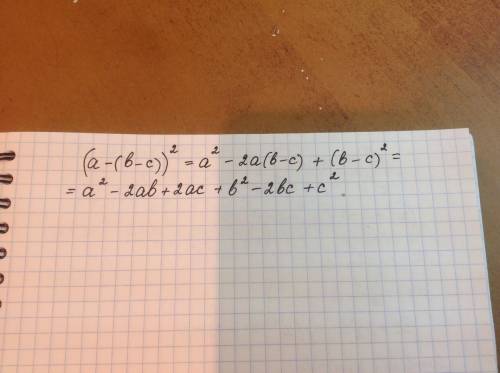 (a-(b-c))² = a² - 2a(b-c) + (b-c)² =
= a² - 2ab + 2ac + b² - 2bc + c².